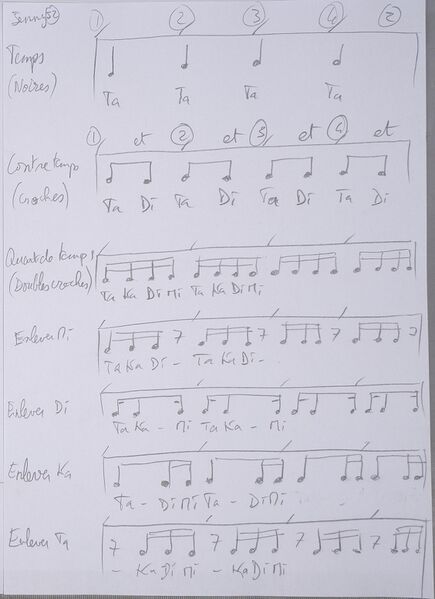 Jenny52 1 2 3 4
Temps
(Noires)
Ta Ta Ta Ta
1 et 2 et 3 et 4 et
Contretemps
(Croches)
Ta Di Ta Di Ta Di Ta Di
Quart de temps
(Doubles croches)
Ta Ka Di Mi Ta Ka Di Mi
Enlever Mi
Ta Ka Di - Ta Ka Di -
Enlever Di
Ta Ka - Mi Ta Ka - Mi
Enlever Ka
Ta - Di Mi Ta - Di Mi
Enlever Ta
- Ka Di Mi - Ka Di Mi